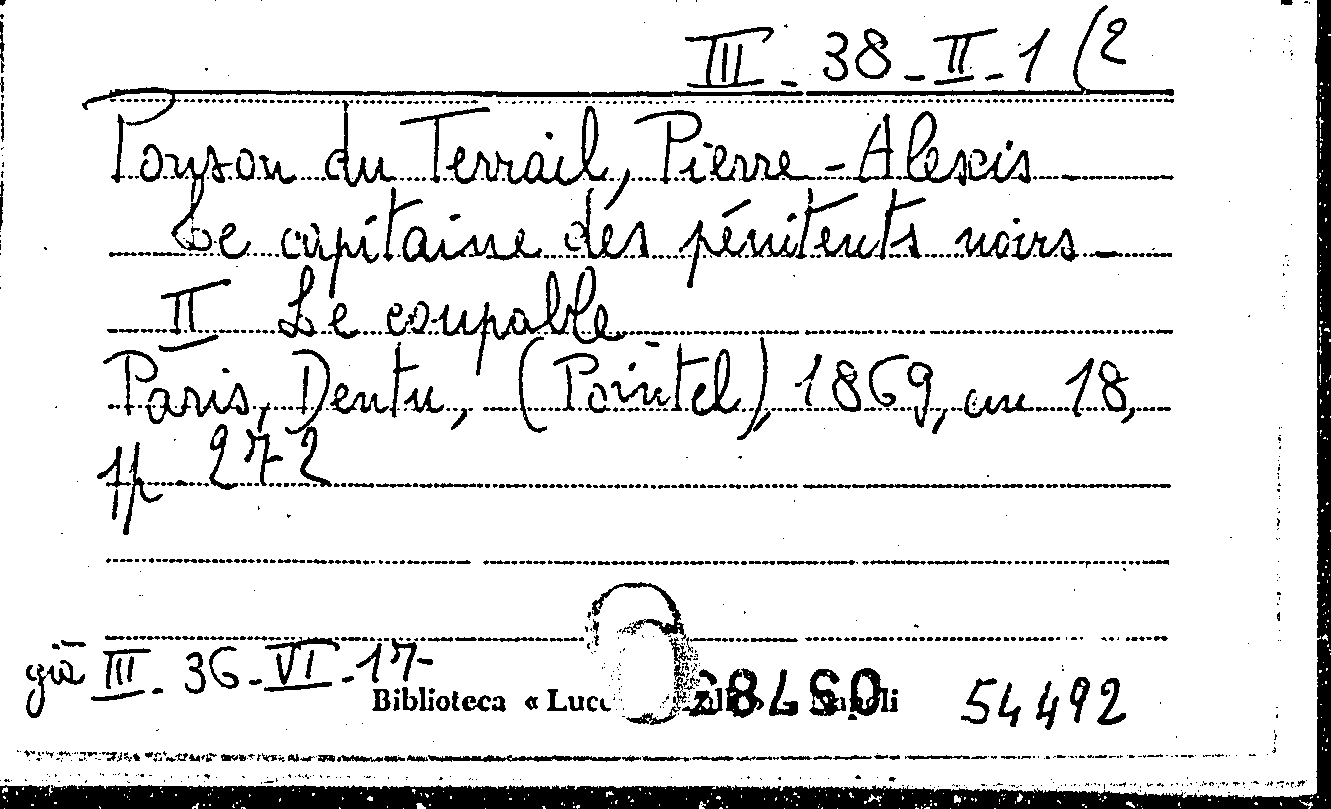 III - 38 - II - 1 (2
Ponson du Terrail, Pierre-Alexis
Le capitaine des pénitents noirs -
II Le coupable
Paris, Dentu, (Pointel), 1869, in 18,
pp. 272
già III - 36 - VI - 17 -
Biblioteca « 54492